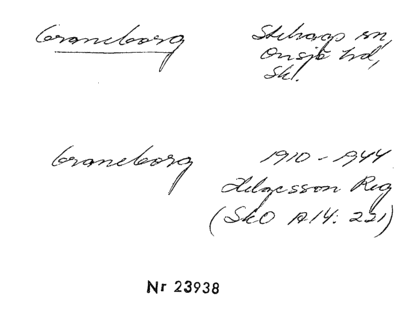 Craneborg
Stehags sn,
Onsjö hd,
Sk.
Craneborg
1910-1944
Helgesson Reg
(SkO A14: 221)
Nr 23938